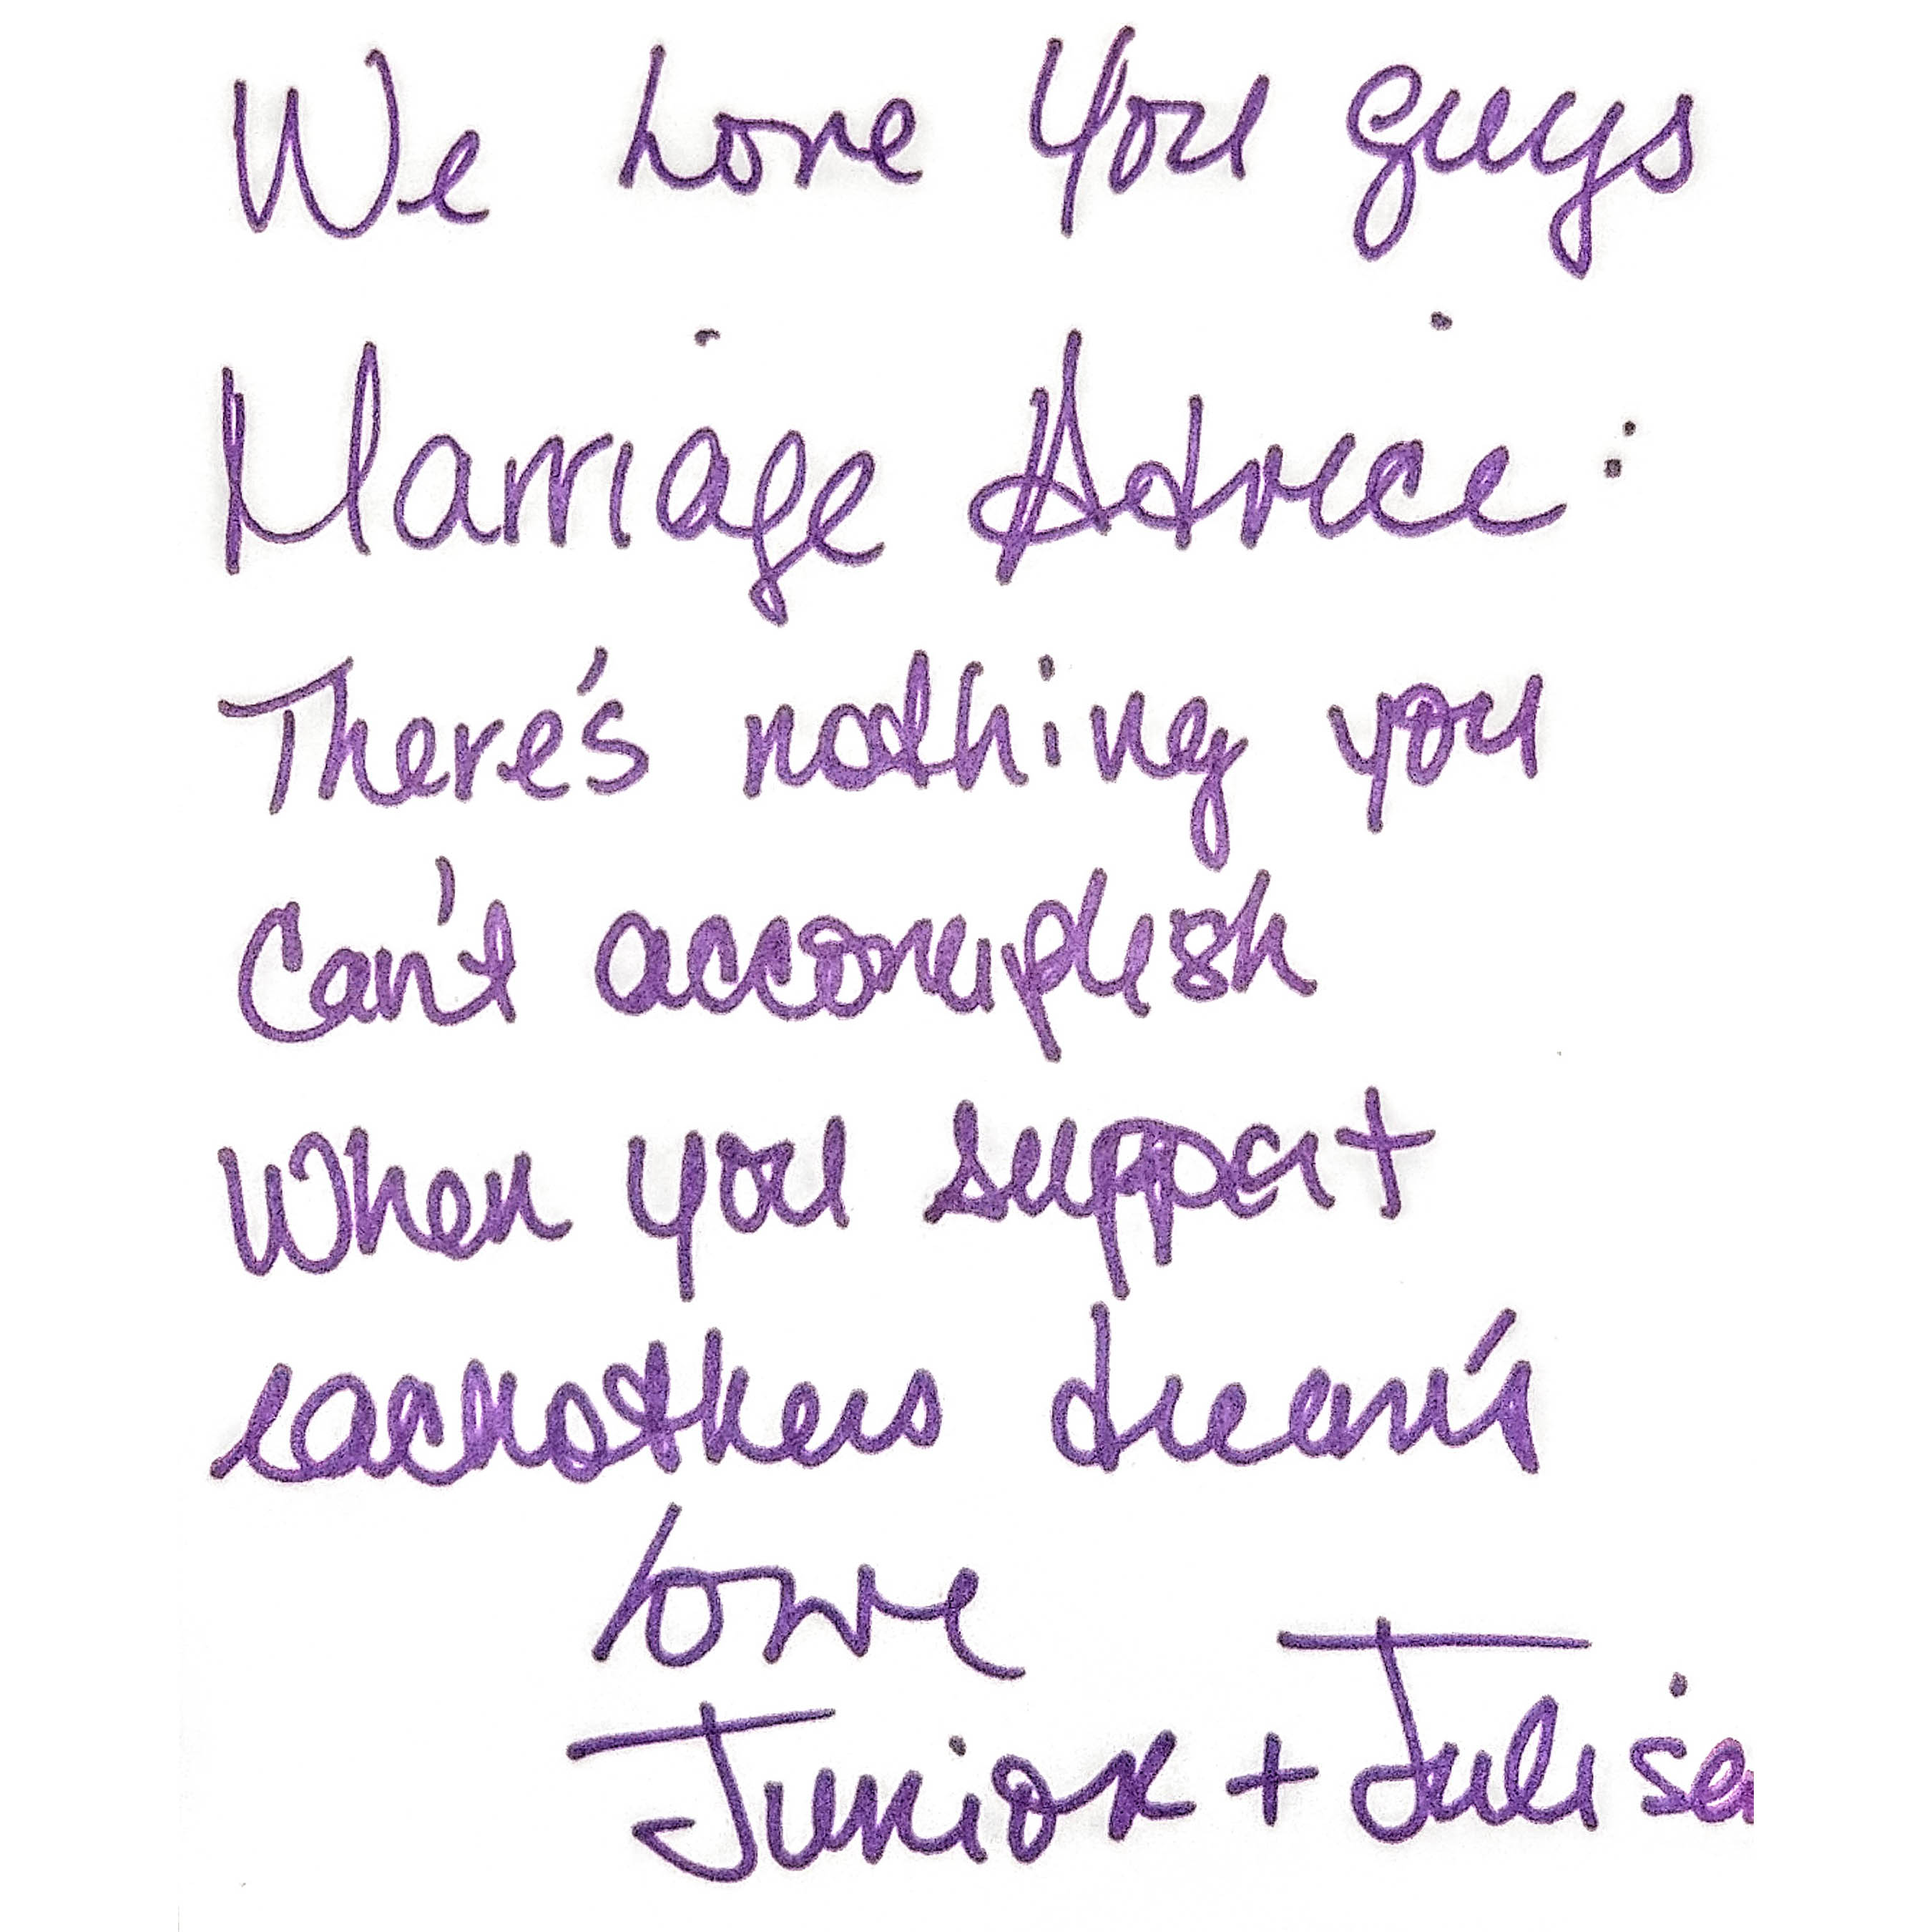 We Love You guys
Marriage Advice:
There's nothing you
Can't accomplish
When you support
eachothers dream's
Love
Junior +